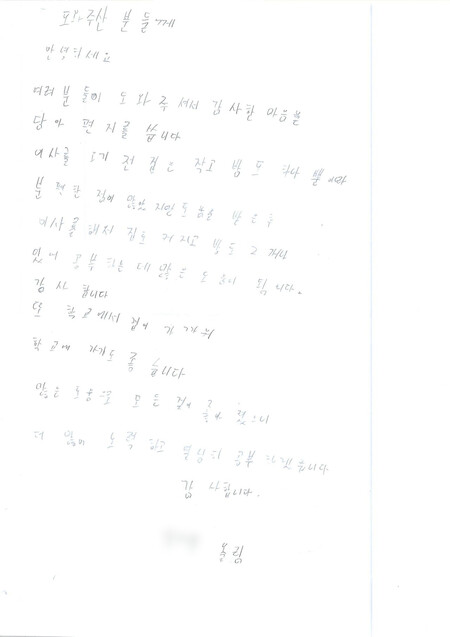 도와주신 분들께
안녕하세요
여러분들이 도와주셔서 감사한 마음을
담아 편지를 씁니다
이사를 오기 전 집은 작고 방도 하나 뿐이라
불편한 점이 많았지만 도움을 받은후
이사를 해서 집도 커지고 방도 2개나
있니 공부하는데 많은 도움이 됩니다.
감사합니다
또 학교에서 집이 가까워
학교에 가기도 좋습니다
많은 도움으로 모든 점이
더 많이 노력하고 열심히 공부하겠습니다
감사합니다.
올림